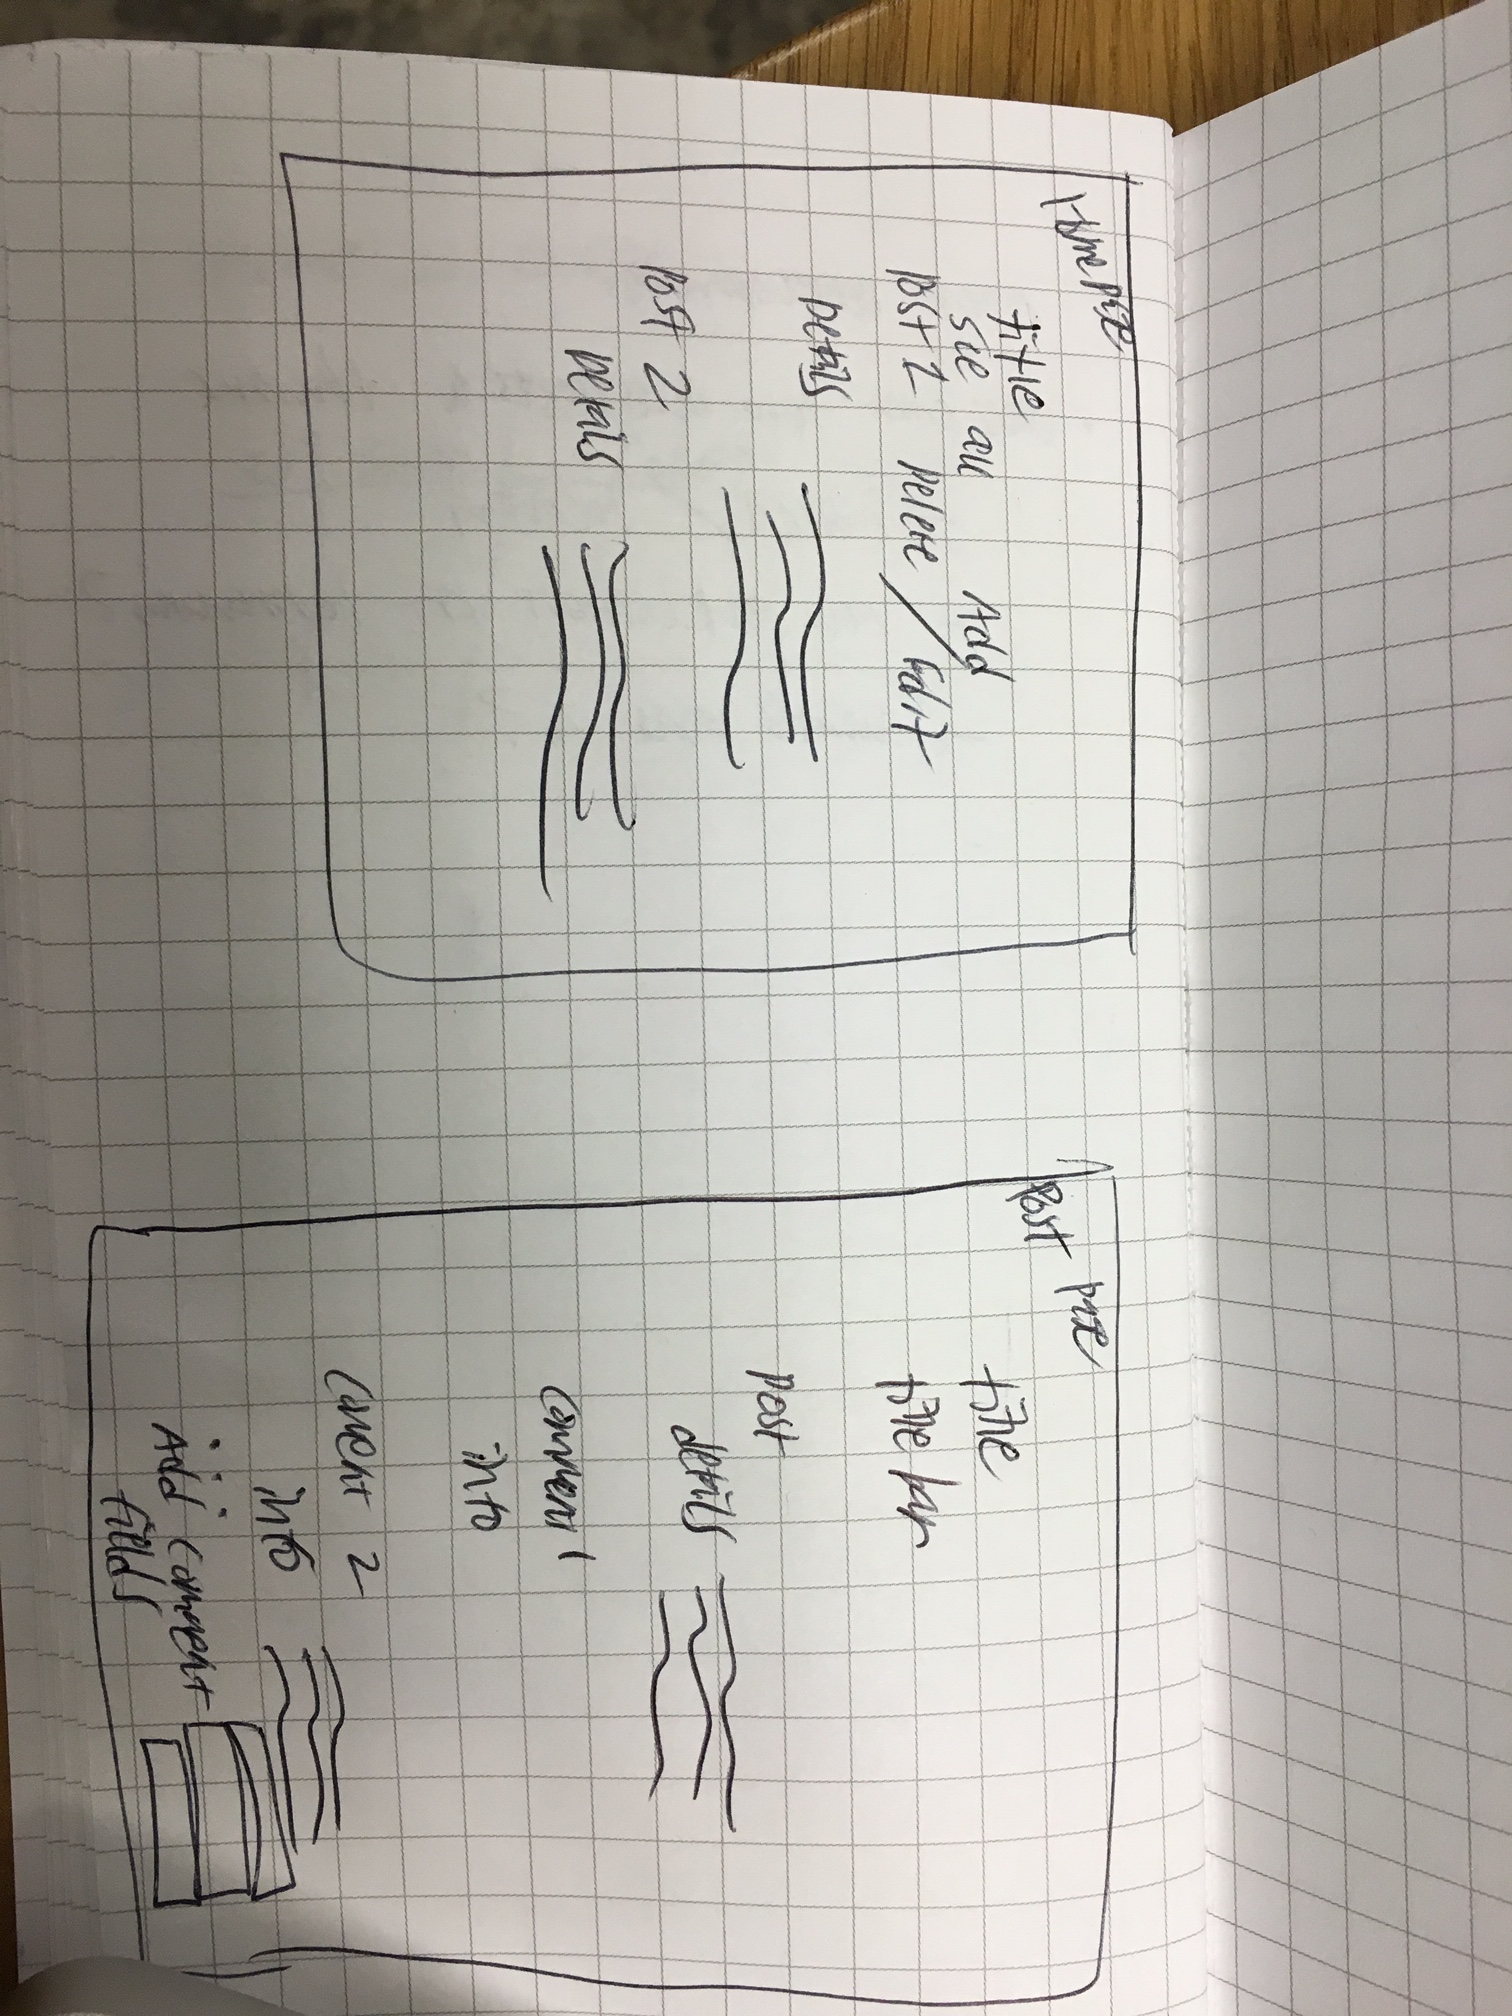 Home page
title
see all Add
Post 1 Delete / Edit
Details
Post 2
Details
Post page
title
title bar
post
details
Comment 1
info
Coment 2
info
Add Comment
fields